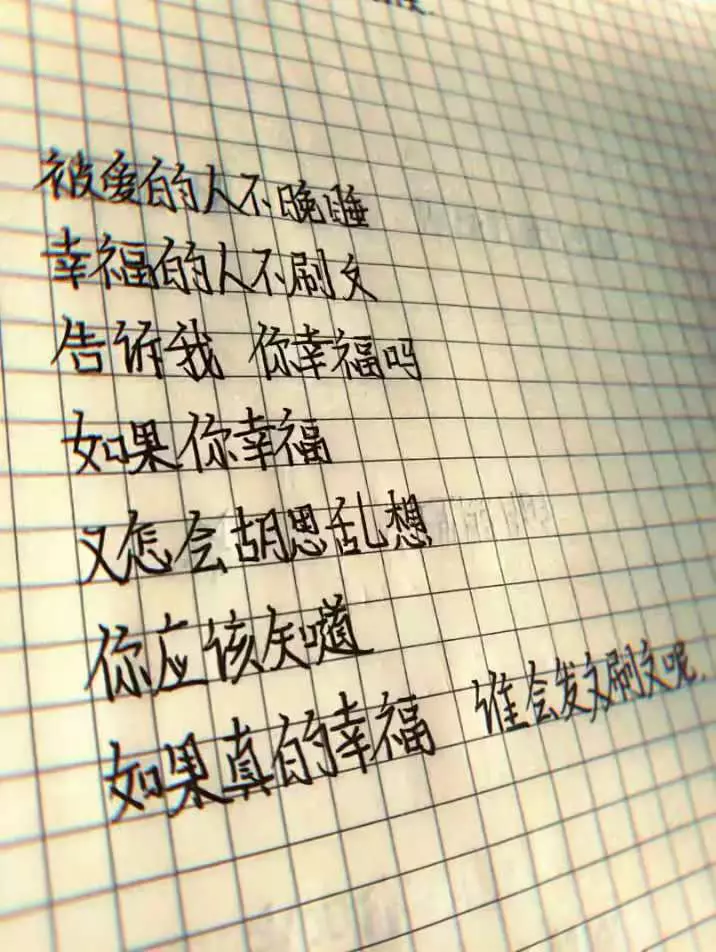 被爱的人不晚睡
幸福的人不刷文
告诉我 你幸福吗
如果你幸福
又怎会胡思乱想
你应该知道
如果真的幸福 谁会发文刷文呢.